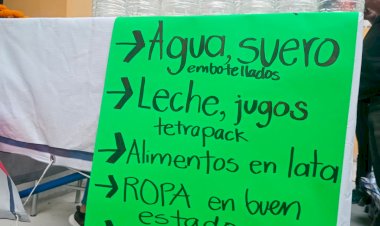 → Agua, suero
embotellados
→ Leche, jugos
tetrapack
→ Alimentos en lata
→ ROPA en buen
estado